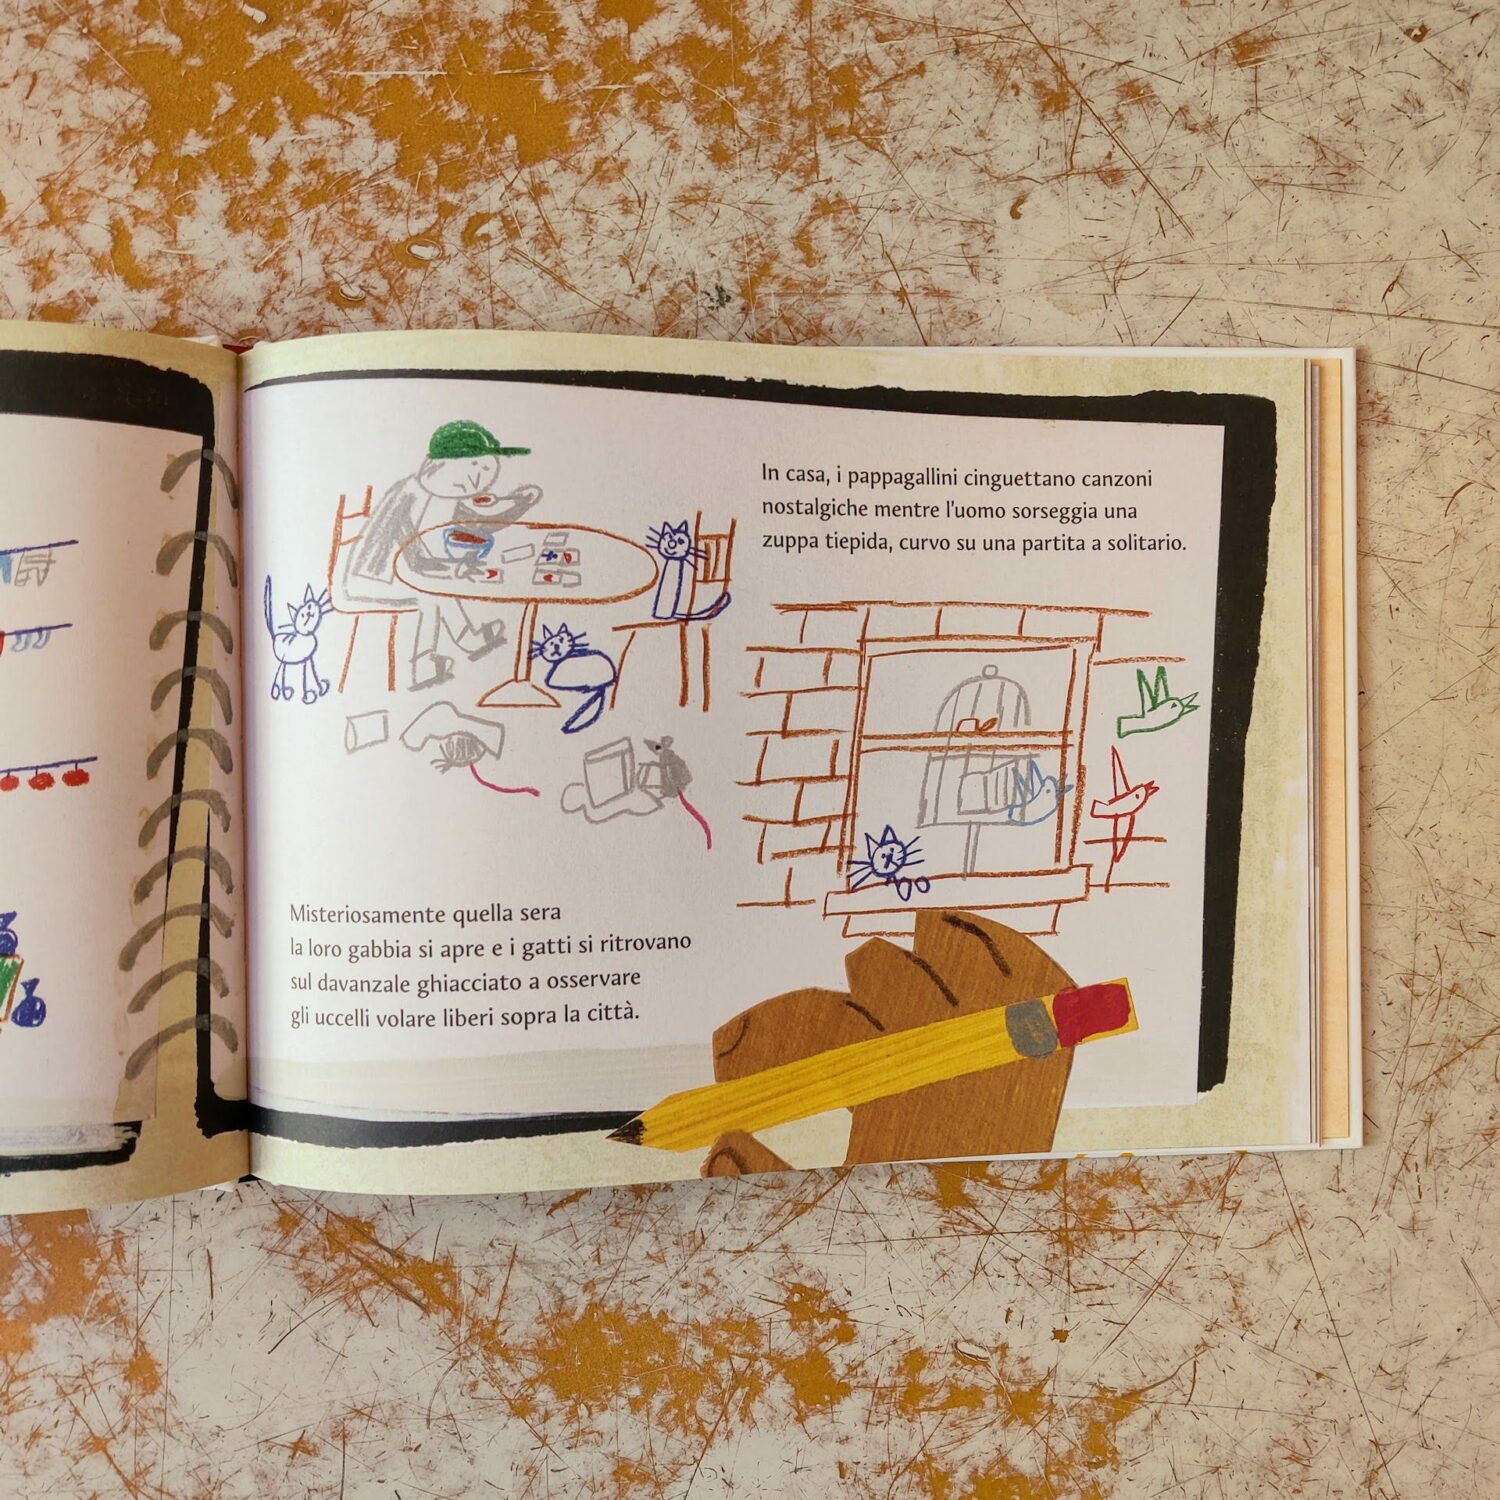 In casa, i pappagallini cinguettano canzoni
nostalgiche mentre l'uomo sorseggia una
zuppa tiepida, curvo su una partita a solitario.
Misteriosamente quella sera
la loro gabbia si apre e i gatti si ritrovano
sul davanzale ghiacciato a osservare
gli uccelli volare liberi sopra la città.